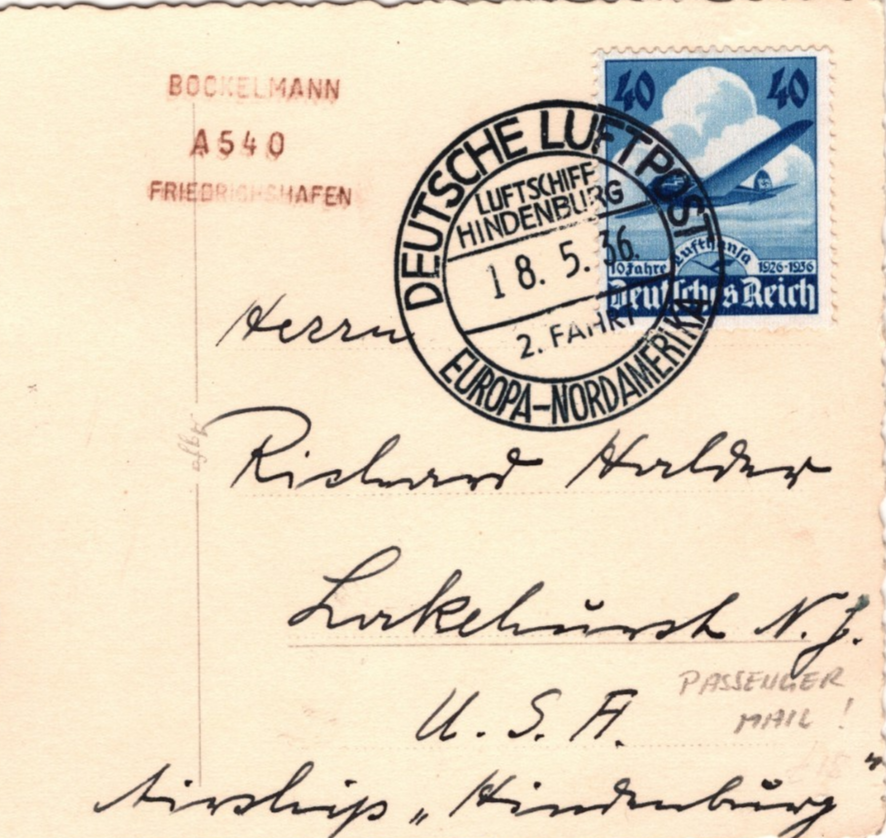 BOCKELMANN
A540
FRIEDRICHSHAFEN
40 40
10 Jahre Lufthansa 1926-1936
Deutsches Reich
DEUTSCHE LUFTPOST
LUFTSCHIFF
HINDENBURG
18. 5. 36.
2. FAHRT
EUROPA-NORDAMERIKA
Herrn
Agfa
Richard Halder
Lakehurst N.J.
U.S.A.
PASSENGER
MAIL!
Airship „Hindenburg"